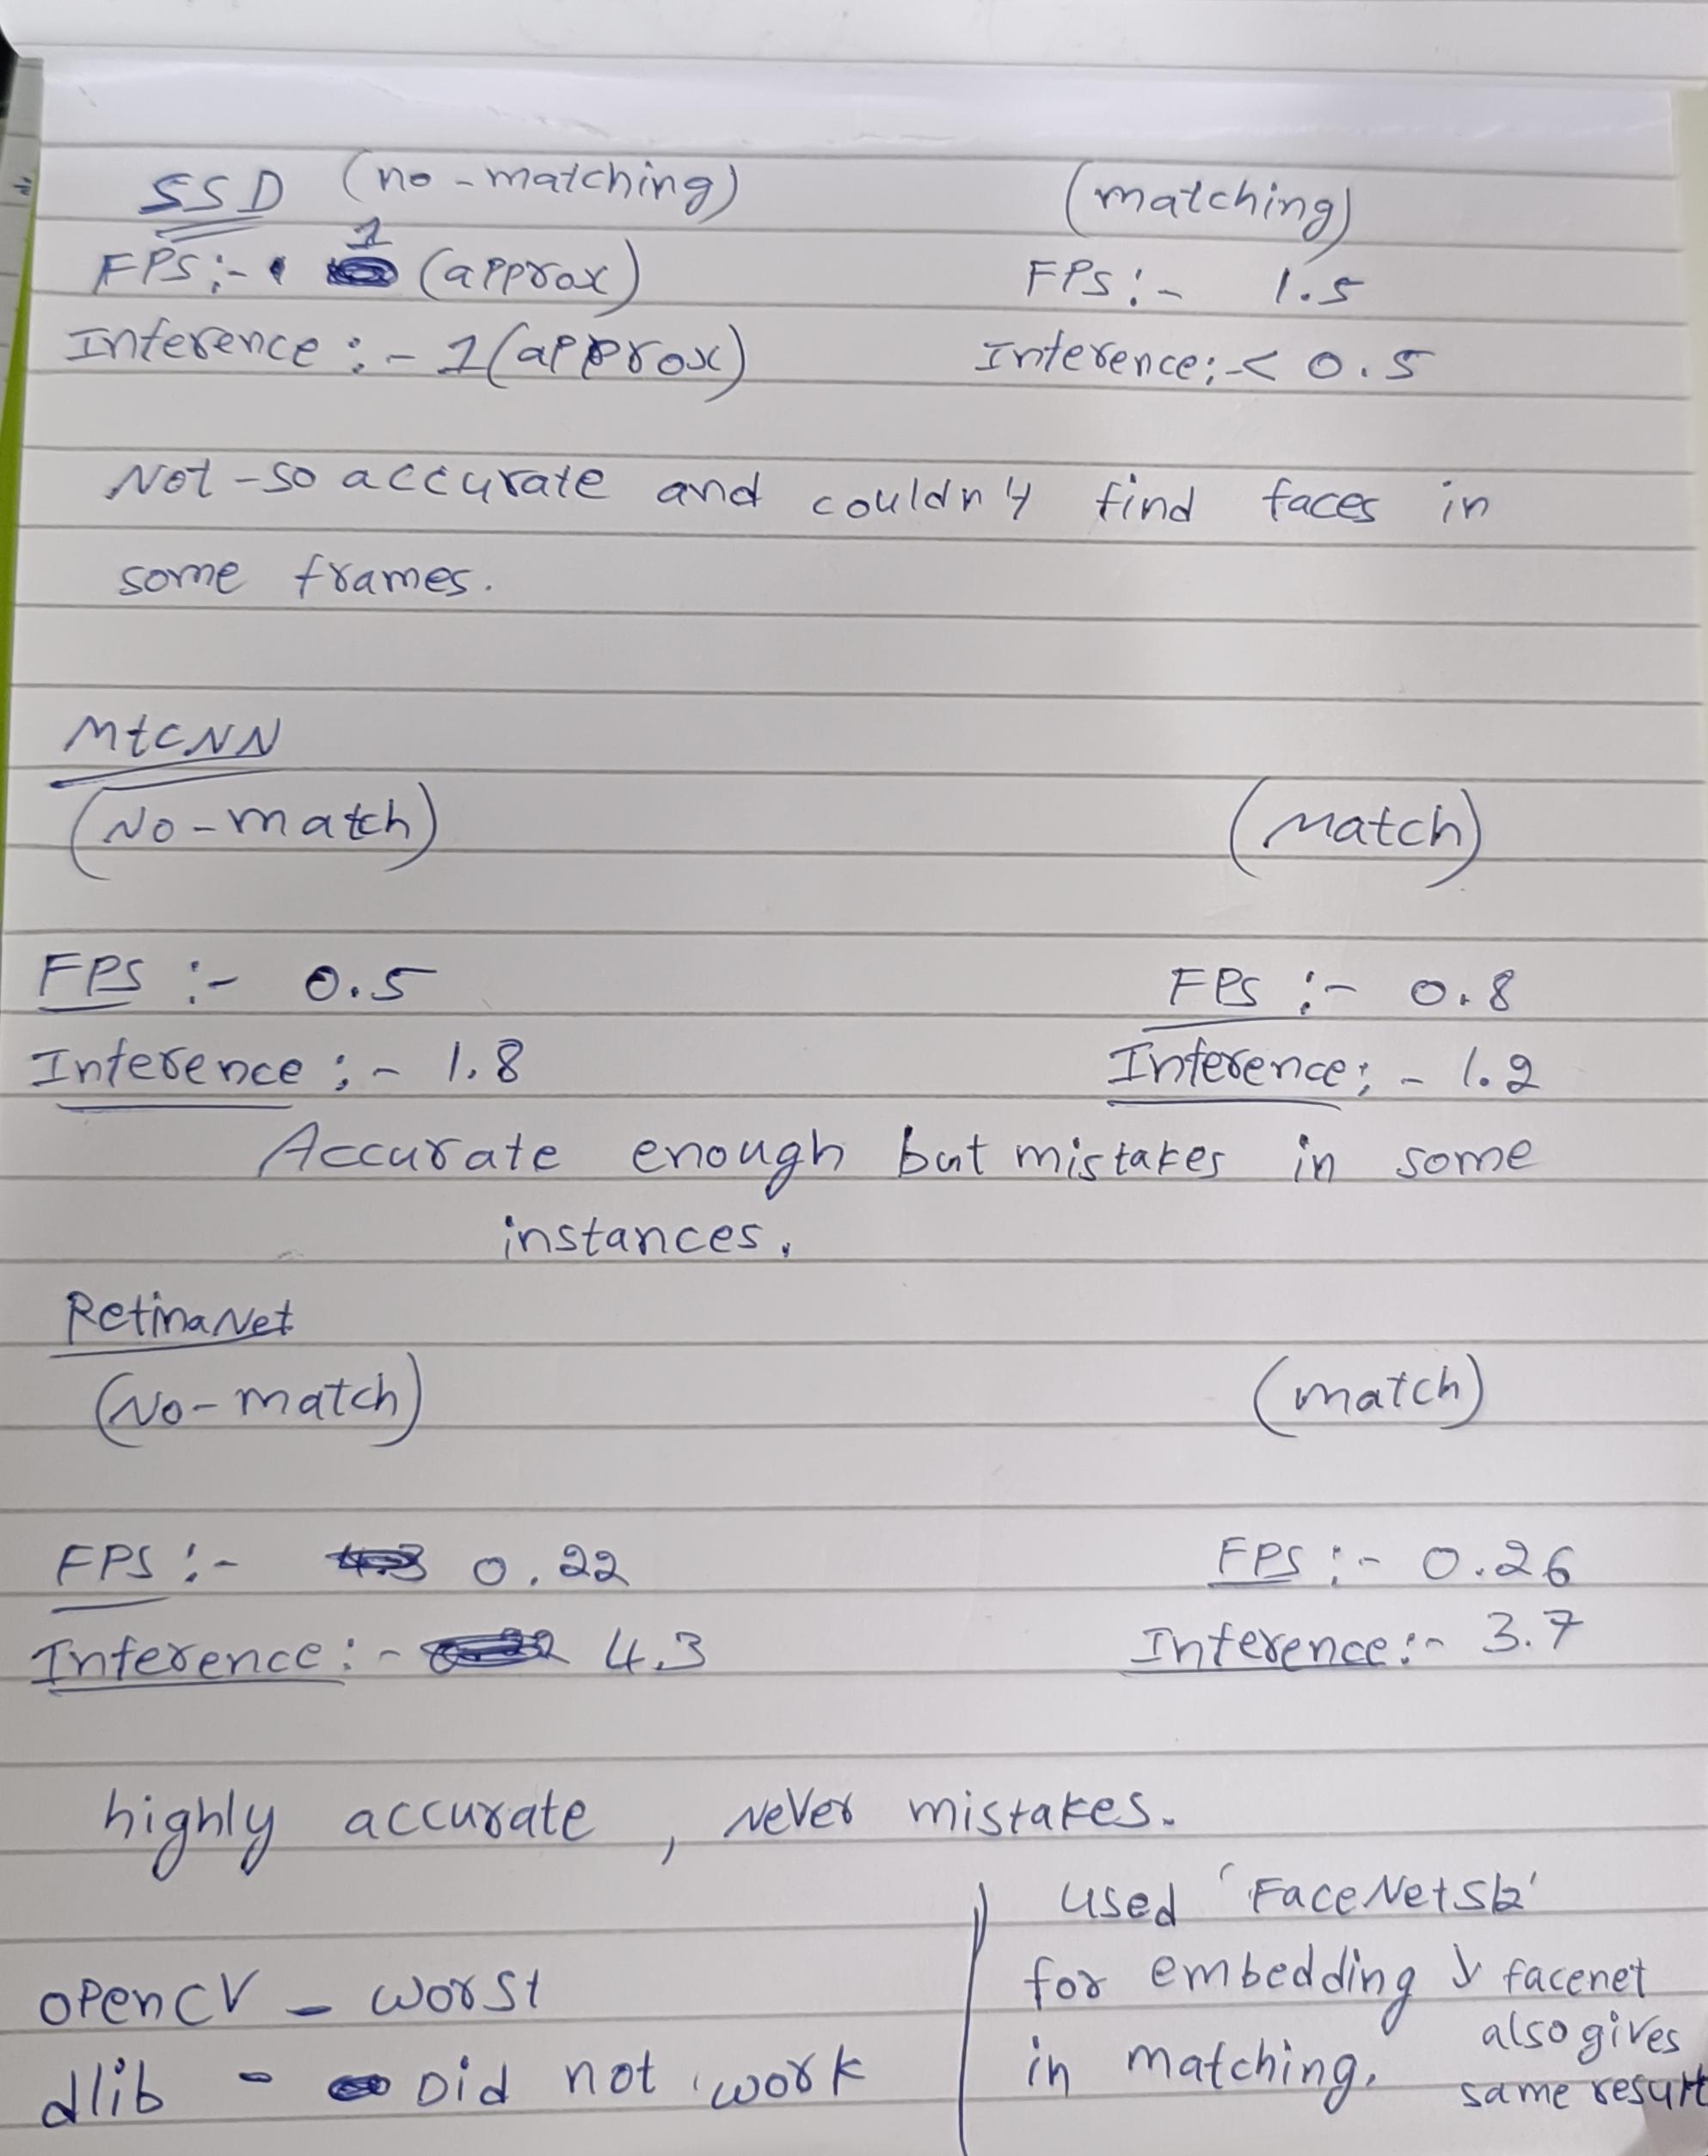 SSD (no-matching) (matching)
FPS :- 1 (approx) FPS :- 1.5
Inference :- 1 (approx) Inference :- < 0.5
Not-so accurate and couldn't find faces in
some frames.
MtCNN
(No-match) (Match)
FPS :- 0.5 FPS :- 0.8
Inference :- 1.8 Inference :- 1.2
Accurate enough but mistakes in some
instances.
RetinaNet
(No-match) (match)
FPS :- 0.22 FPS :- 0.26
Inference :- 4.3 Inference :- 3.7
highly accurate, Never mistakes.
OpenCV - worst
dlib - Did not work
used 'FaceNet512'
for embedding
in matching.
facenet
also gives
same result